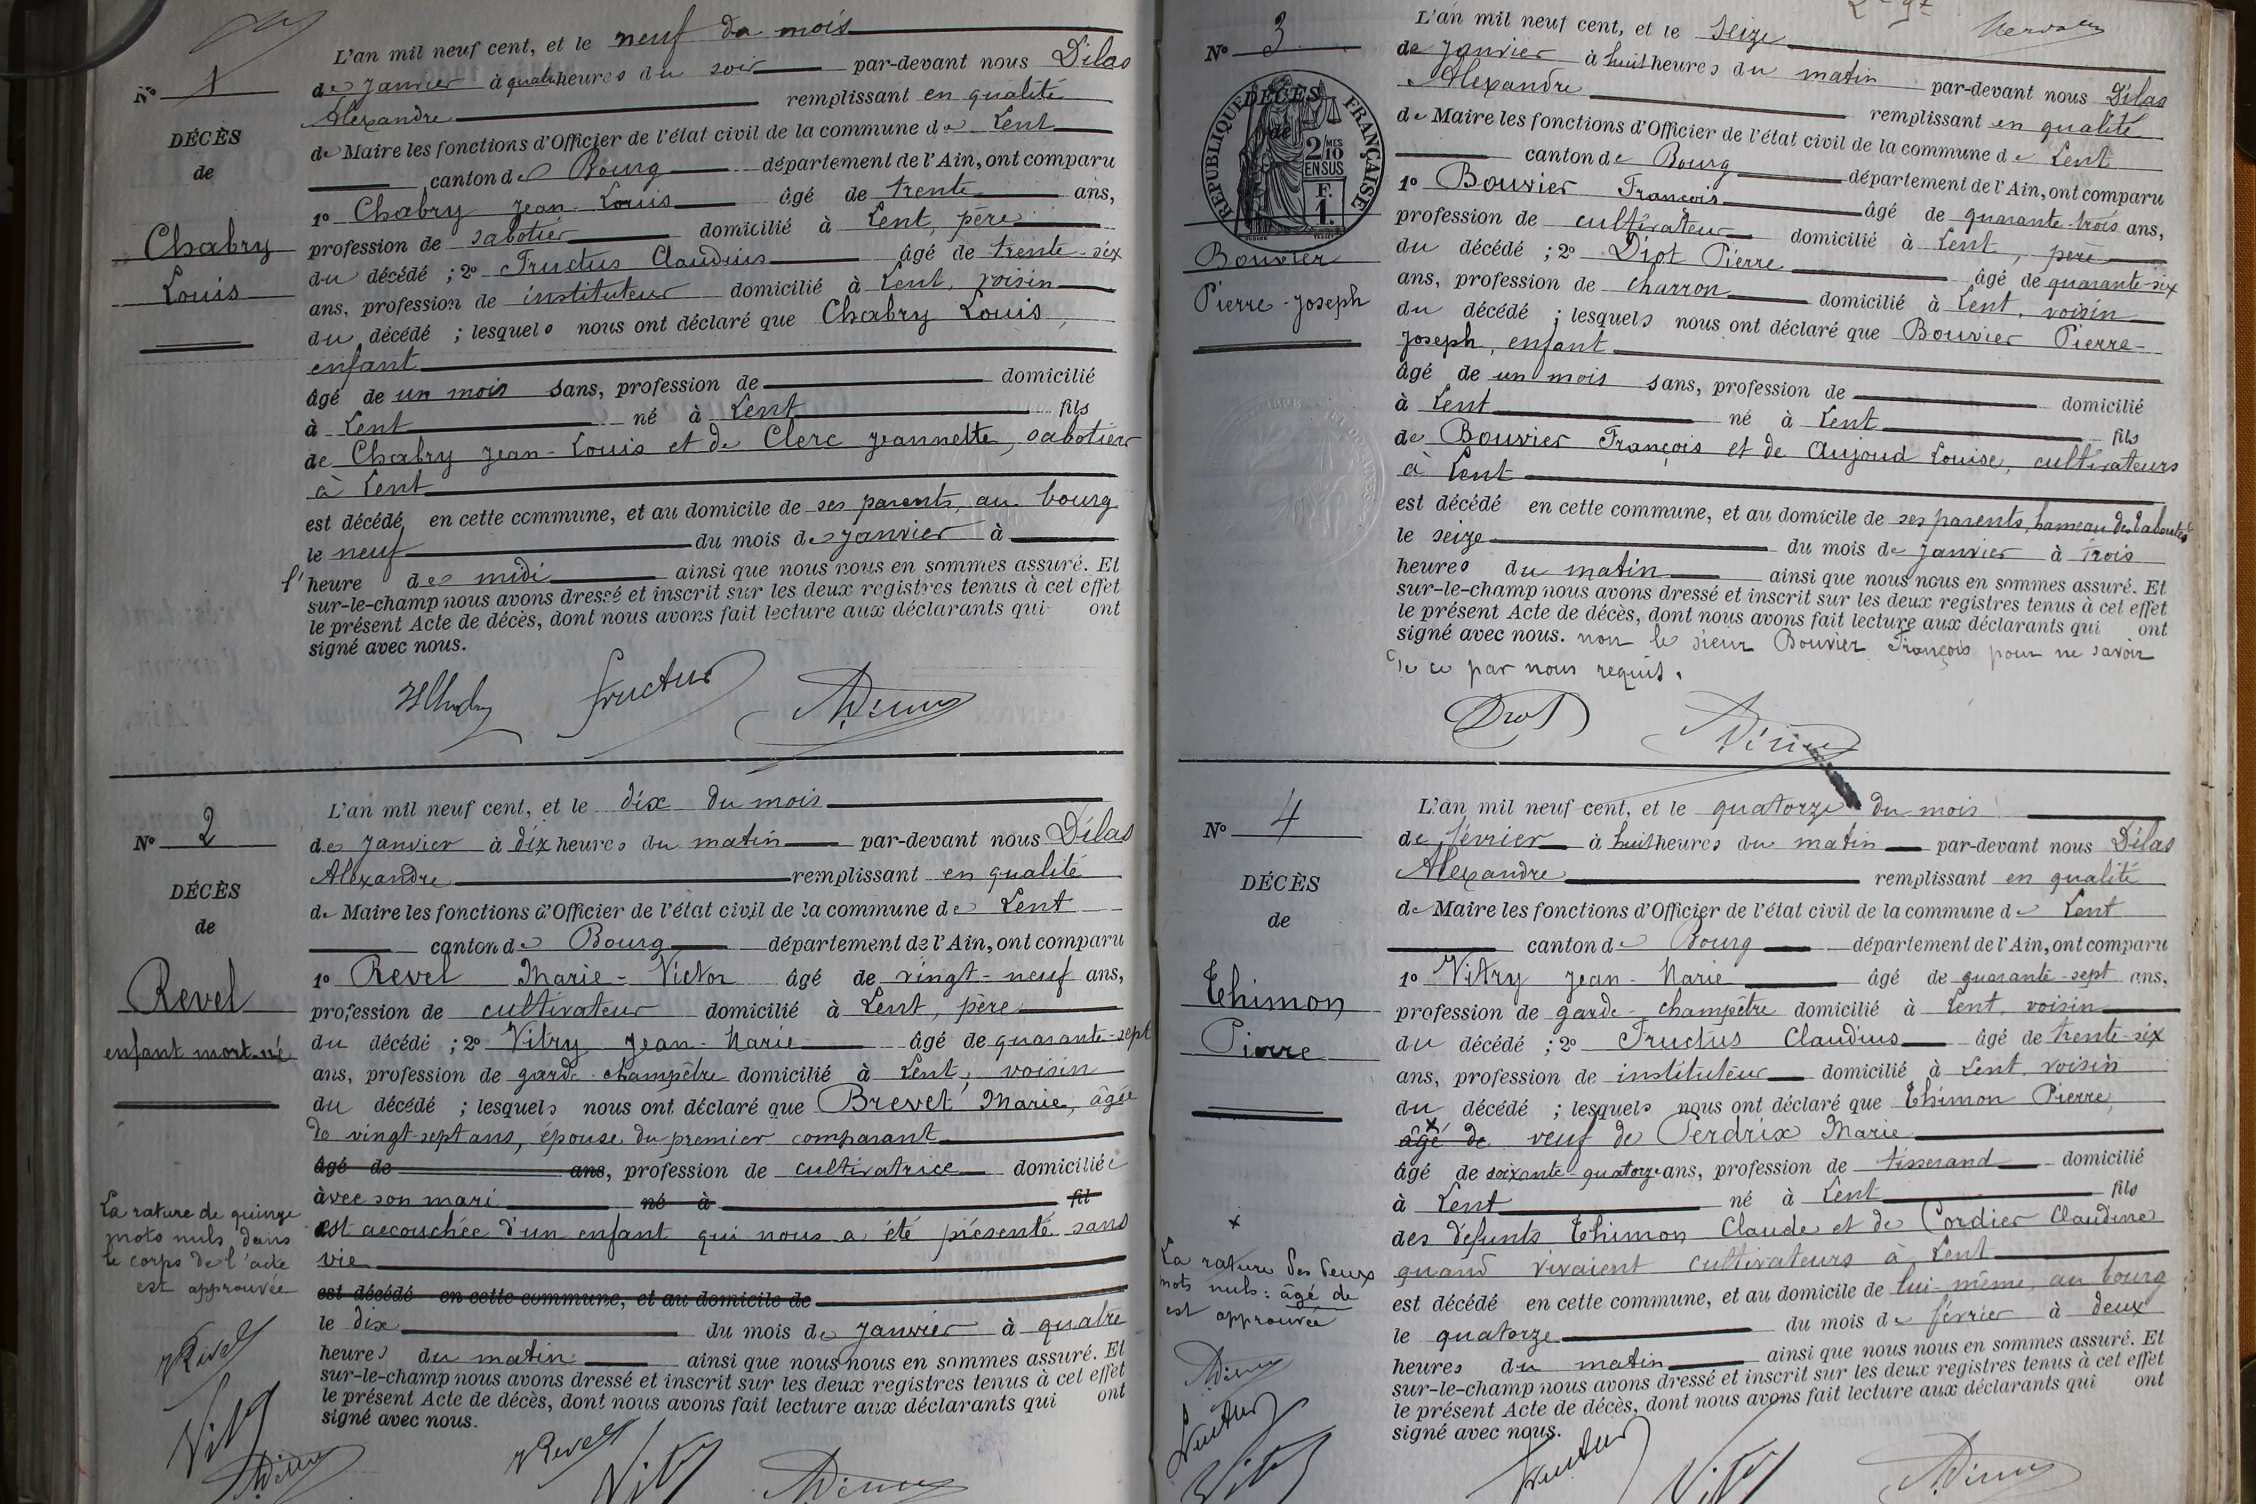 L'an mil neuf cent, et le neuf du mois
N° 1
de Janvier à quatre heures du soir par-devant nous Dilas
Alexandre remplissant en qualité
DÉCÈS
de Maire les fonctions d'Officier de l'état civil de la commune de Lent
de
canton de Bourg département de l'Ain, ont comparu
1° Chabry Jean-Louis âgé de trente ans,
Chabry
profession de sabotier domicilié à Lent, père
Louis
du décédé ; 2° Fructus Claudius âgé de trente-six
ans, profession de instituteur domicilié à Lent, voisin
du décédé ; lesquels nous ont déclaré que Chabry Louis,
enfant
âgé de un mois sans, profession de domicilié
à Lent né à Lent fils
de Chabry Jean-Louis et de Clerc Jeannette, sabotiers
à Lent
est décédé en cette commune, et au domicile de ses parents, au bourg
le neuf du mois de Janvier à
l'heure de midi ainsi que nous nous en sommes assuré. Et
sur-le-champ nous avons dressé et inscrit sur les deux registres tenus à cet effet
le présent Acte de décès, dont nous avons fait lecture aux déclarants qui ont
signé avec nous.
Fructus
L'an mil neuf cent, et le dix du mois
N° 2
de Janvier à dix heures du matin par-devant nous Dilas
Alexandre remplissant en qualité
DÉCÈS
de Maire les fonctions d'Officier de l'état civil de la commune de Lent
de
canton de Bourg département de l'Ain, ont comparu
1° Revel Marie-Victor âgé de vingt-neuf ans,
Revel
profession de cultivateur domicilié à Lent, père
enfant mort-né
du décédé ; 2° Vitry Jean-Marie âgé de quarante-sept
ans, profession de garde-champêtre domicilié à Lent, voisin
du décédé ; lesquels nous ont déclaré que Brevet Marie, âgée
de vingt-sept ans, épouse du premier comparant
âgé de ans, profession de cultivatrice domiciliée
avec son mari né à fil
est accouchée d'un enfant qui nous a été présenté sans
vie
est décédé en cette commune, et au domicile de
le dix du mois de Janvier à quatre
heures du matin ainsi que nous nous en sommes assuré. Et
sur-le-champ nous avons dressé et inscrit sur les deux registres tenus à cet effet
le présent Acte de décès, dont nous avons fait lecture aux déclarants qui ont
signé avec nous.
La rature de quinze
mots nuls dans
le corps de l'acte
est approuvée
Revel
Vitry
Revel
Vitry
L'an mil neuf cent, et le seize
N° 3
de Janvier à huit heures du matin par-devant nous Dilas
Alexandre remplissant en qualité
DÉCÈS
de
RÉPUBLIQUE FRANÇAISE
2/10 MES
EN SUS
F.
1.
de Maire les fonctions d'Officier de l'état civil de la commune de Lent
canton de Bourg département de l'Ain, ont comparu
1° Bouvier François âgé de quarante-trois ans,
profession de cultivateur domicilié à Lent, père
Bouvier
du décédé ; 2° Diot Pierre âgé de quarante-six
Pierre-Joseph
ans, profession de charron domicilié à Lent, voisin
du décédé ; lesquels nous ont déclaré que Bouvier Pierre-
Joseph, enfant
âgé de un mois sans, profession de domicilié
à Lent né à Lent fils
de Bouvier François et de Aujoud Louise, cultivateurs
à Lent
est décédé en cette commune, et au domicile de ses parents, hameau des
le seize du mois de Janvier à trois
heures du matin ainsi que nous nous en sommes assuré. Et
sur-le-champ nous avons dressé et inscrit sur les deux registres tenus à cet effet
le présent Acte de décès, dont nous avons fait lecture aux déclarants qui ont
signé avec nous. non le sieur Bouvier François pour ne savoir
de ce par nous requis.
Diot
L'an mil neuf cent, et le quatorze du mois
N° 4
de février à huit heures du matin par-devant nous Dilas
Alexandre remplissant en qualité
DÉCÈS
de Maire les fonctions d'Officier de l'état civil de la commune de Lent
de
canton de Bourg département de l'Ain, ont comparu
1° Vitry Jean-Marie âgé de quarante-sept ans,
Thimon
profession de garde-champêtre domicilié à Lent, voisin
Pierre
du décédé ; 2° Fructus Claudius âgé de trente-six
ans, profession de instituteur domicilié à Lent, voisin
du décédé ; lesquels nous ont déclaré que Thimon Pierre,
x
âgé de veuf de Perdrix Marie
âgé de soixante-quatorze ans, profession de tisserand domicilié
à Lent né à Lent fils
des défunts Thimon Claude et de Cordier Claudine
quand vivaient cultivateurs à Lent
est décédé en cette commune, et au domicile de lui-même, au bourg
le quatorze du mois de février à deux
heures du matin ainsi que nous nous en sommes assuré. Et
sur-le-champ nous avons dressé et inscrit sur les deux registres tenus à cet effet
le présent Acte de décès, dont nous avons fait lecture aux déclarants qui ont
signé avec nous.
x
La rature des deux
mots nuls : âgé de
est approuvée
Fructus
Vitry
Fructus
Vitry